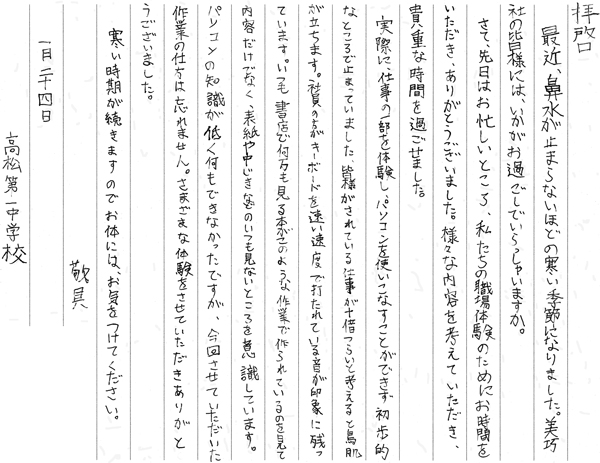 拝啓
最近、鼻水が止まらないほどの寒い季節になりました。美巧
社の皆様には、いかがお過ごしでいらっしゃいますか。
さて、先日はお忙しいところ、私たちの職場体験のためにお時間を
いただき、ありがとうございました。様々な内容を考えていただき、
貴重な時間を過ごせました。
実際に仕事の一部を体験しパソコンを使いこなすことができず初歩的
なところで止まっていました、皆様がされている仕事が十倍つらいと考えると鳥肌
が立ちます。社員の方がキーボードを速い速度で打たれている音が印象に残っ
ています。いつも書店で何万も見る本がこのような作業で作られているのを見て
内容だけでなく、表紙や中じきなどのいつも見ないところを意識しています。
パソコンの知識が低く何もできなかったですが、今回させていただいた
作業の仕方は忘れません。さまざまな体験をさせていただきありがと
うございました。
寒い時期が続きますのでお体には、お気をつけてください。
敬具
一月二十四日
高松第一中学校